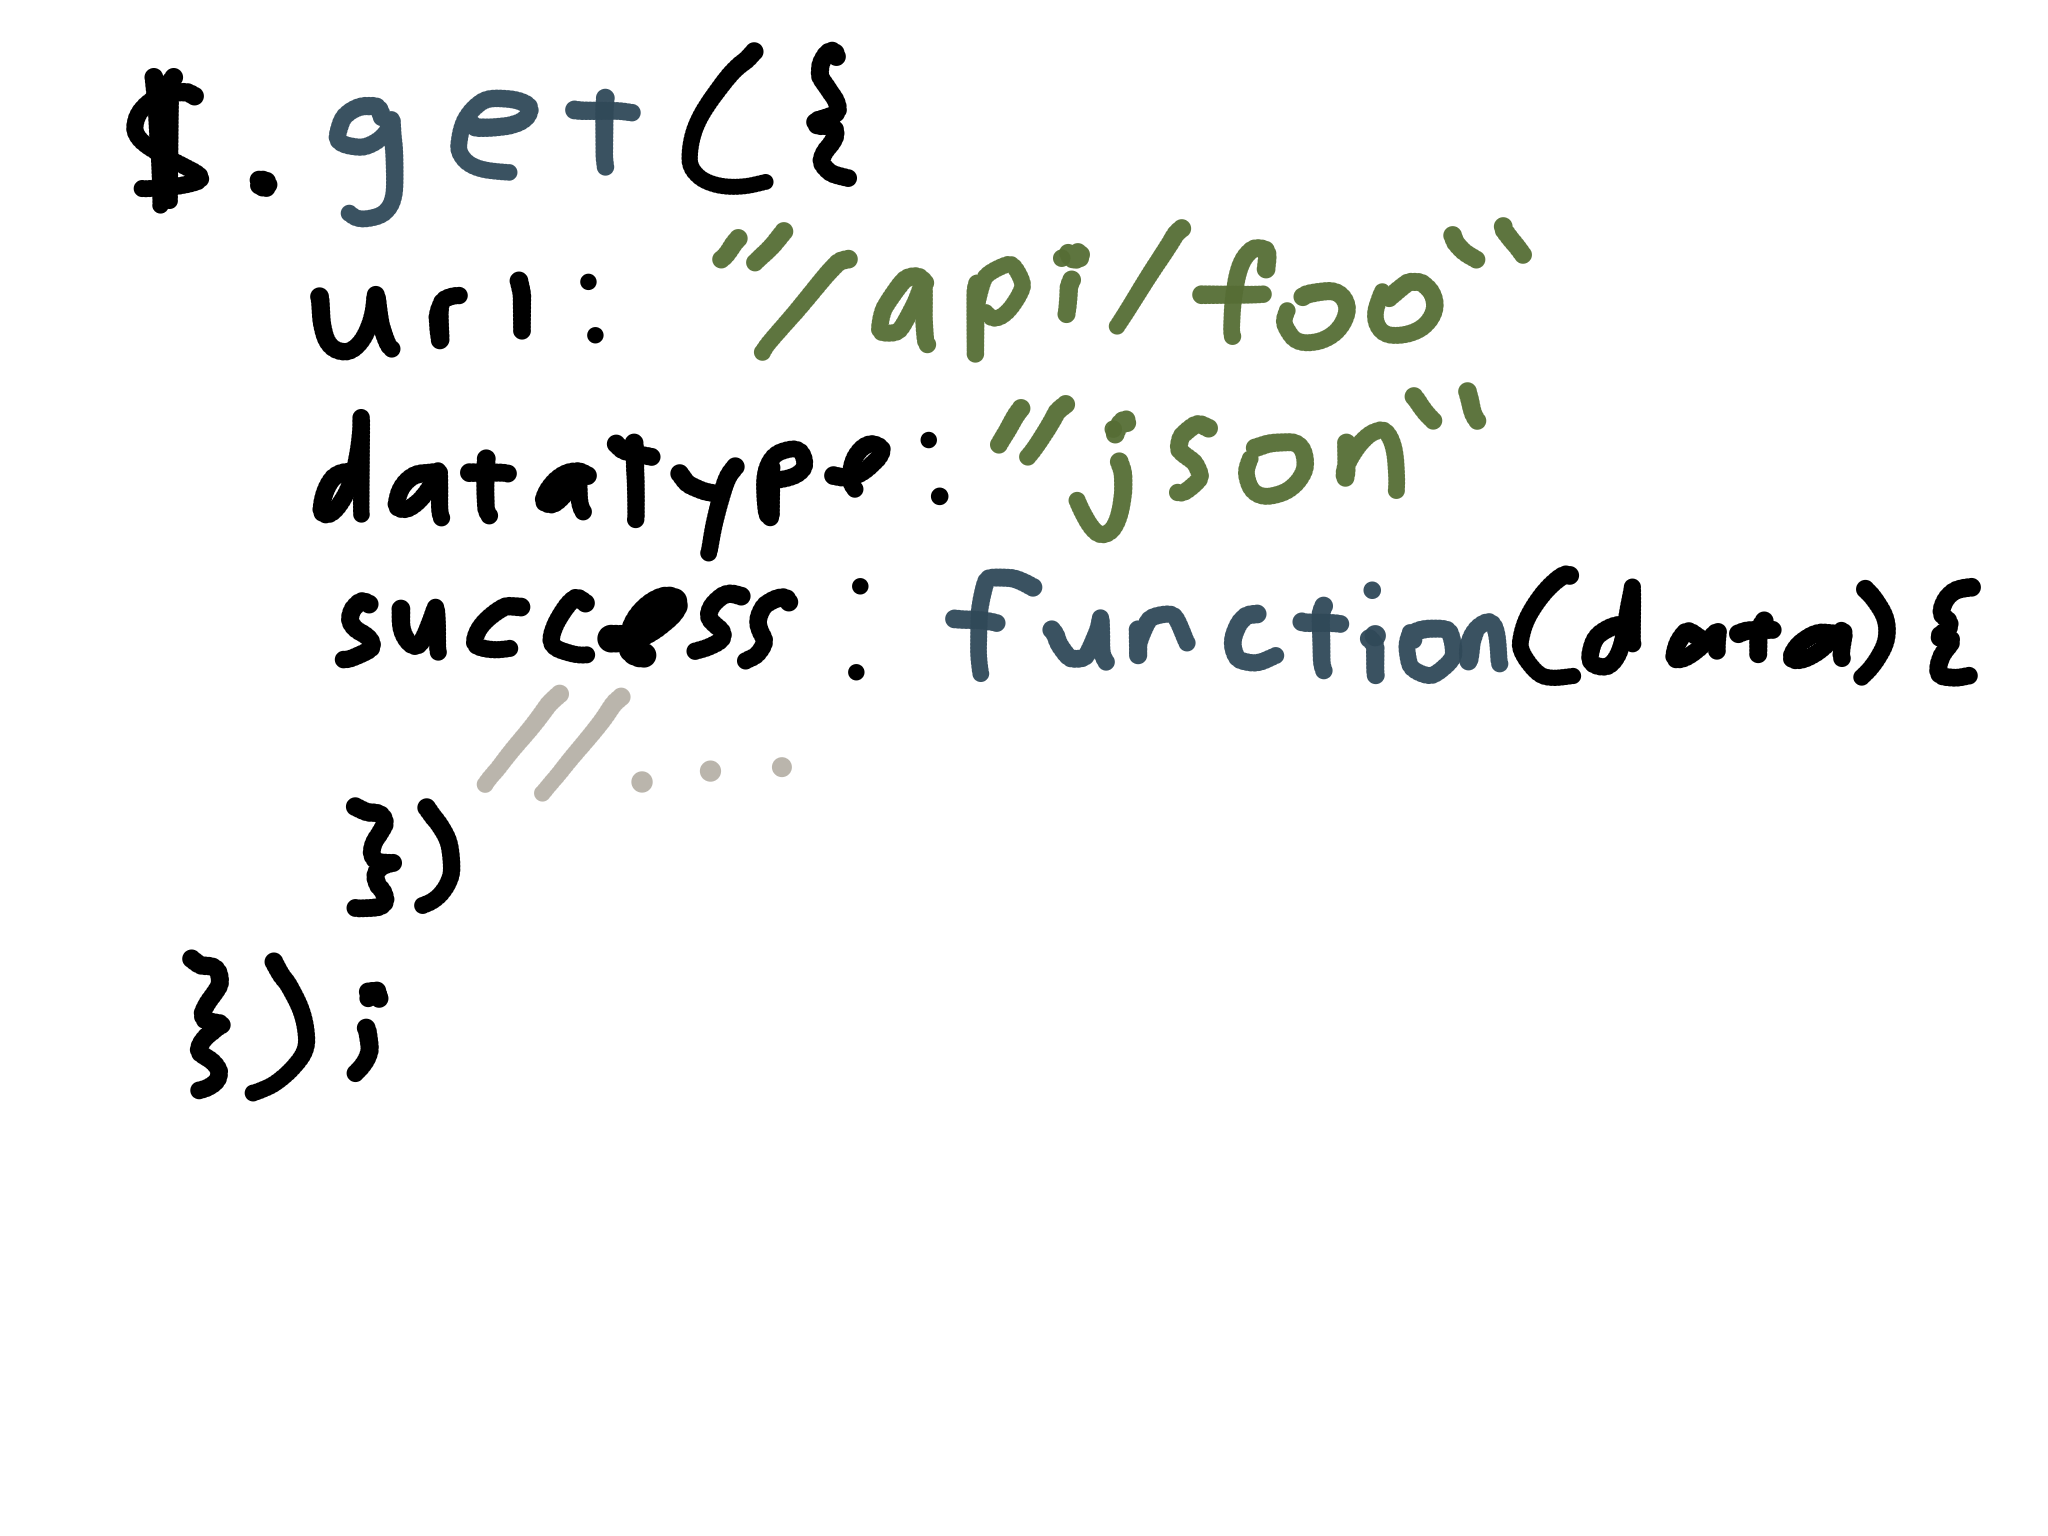 $.get({
url: "/api/foo"
dataType: "json"
success: function(data){
//...
})
});